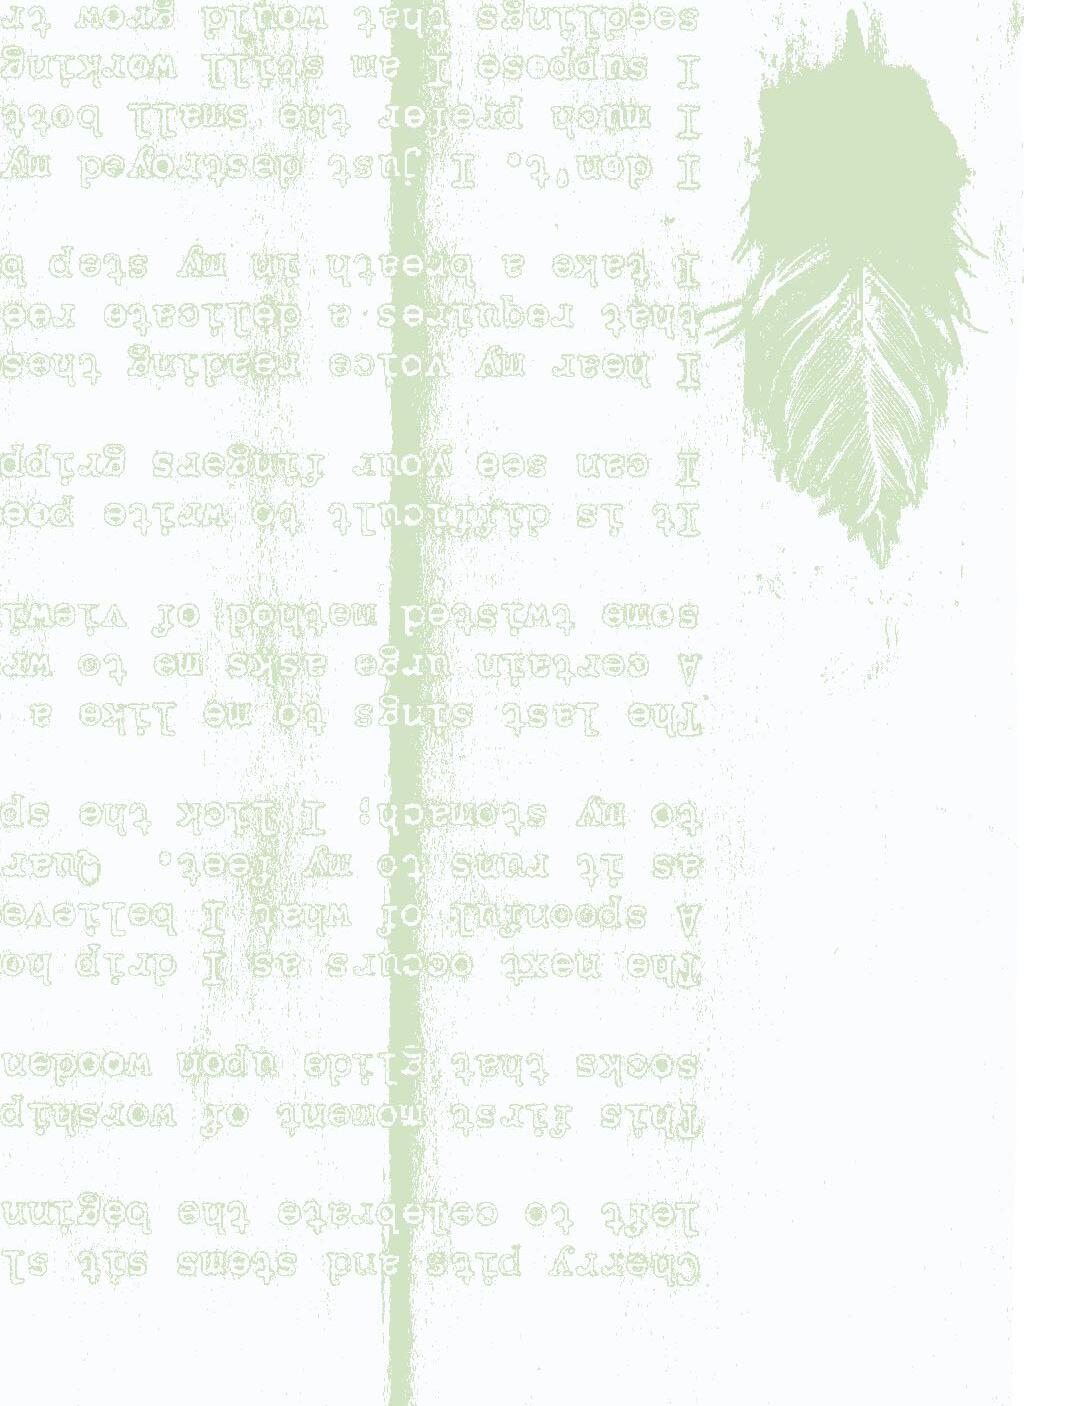 Cherry pits and stems sit sl
left to celebrate the beginn
This first moment of worship
socks that glide upon wooden
The next occurs as I drip ho
A spoonful of what I believe
as it runs to my feet. Quar
to my stomach; I lick the sp
The last sings to me like a
A certain urge asks me to wr
some twisted method of viewi
It is difficult to write poe
I can see your fingers gripp
I hear my voice reading thes
that requires a delicate ree
I take a breath in my step b
I don't. I just destroyed my
I much prefer the small bott
I suppose I am still working
seedlings that would grow tr